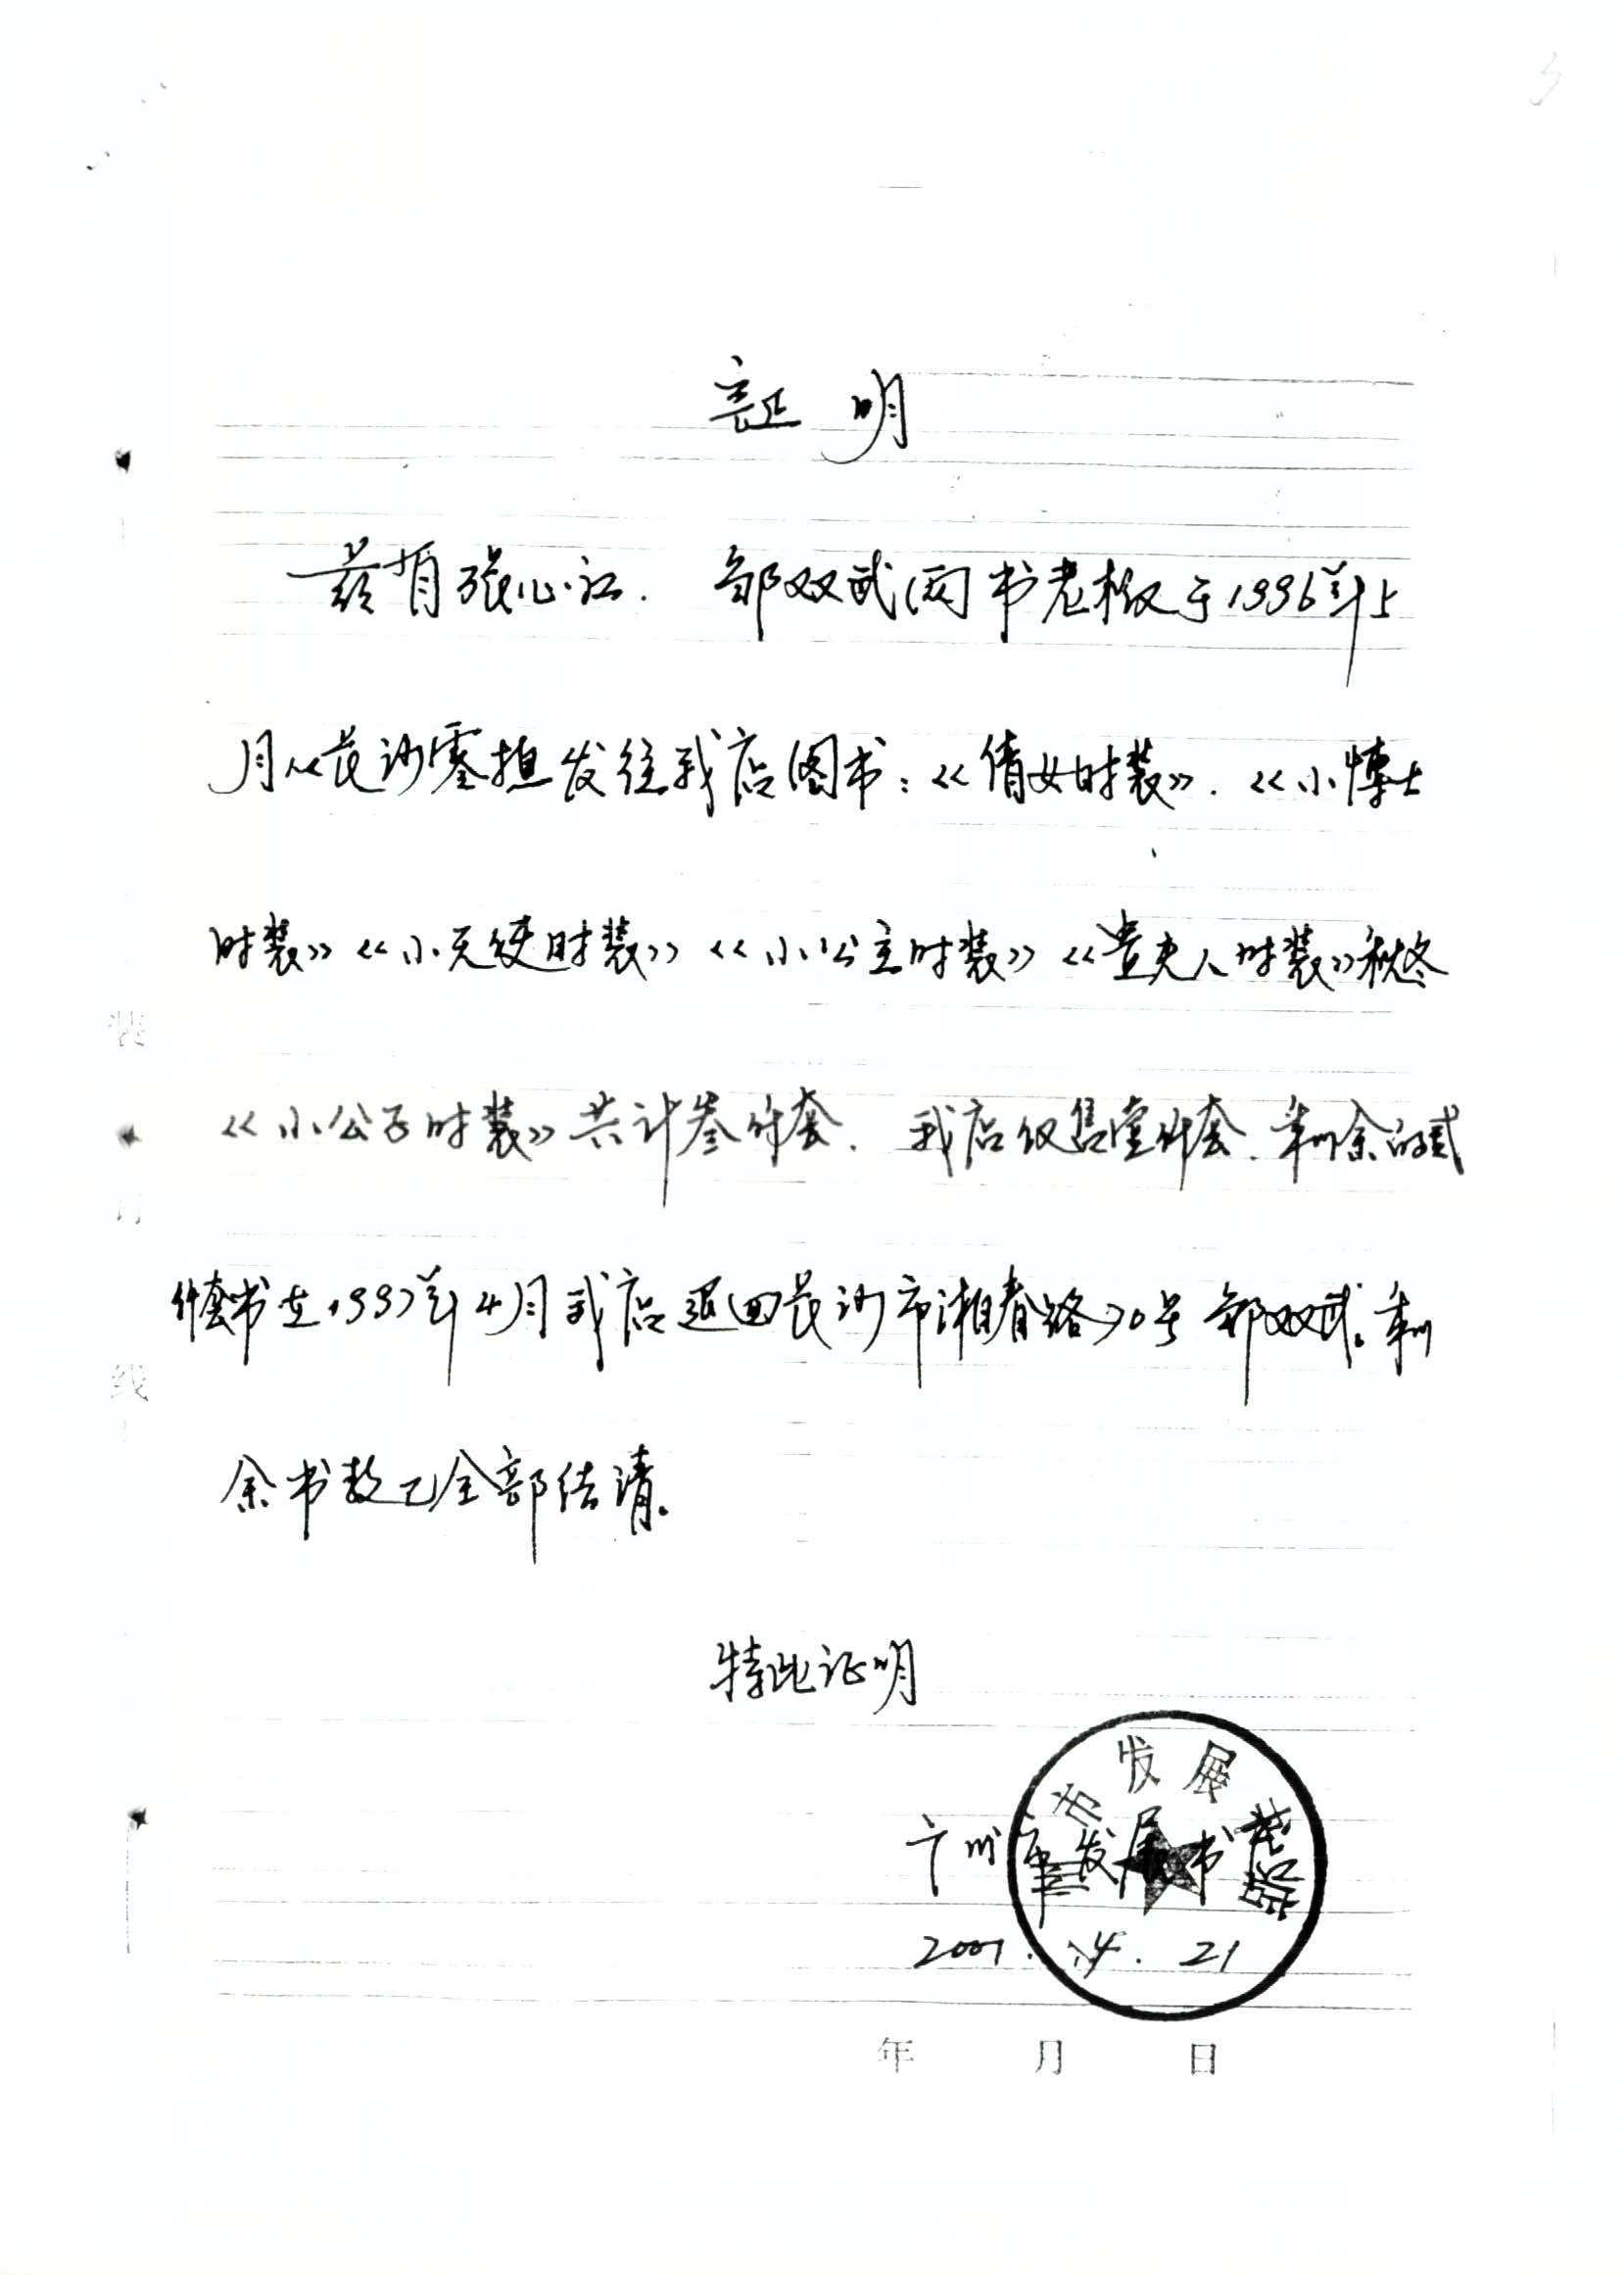 证明
兹有张心江.邹双武两书老板于1996年5
月从长沙零担发往我店图书:《倩女时装》.《小博士
时装》《小天使时装》《小公主时装》《贵夫人时装》秋冬
《小公子时装》共计叁仟套.我店仅售壹仟套.剩余的贰
仟套书在1997年4月我店退回长沙市湘春路70号邹双武。剩
余书款已全部结清。
特此证明
广州市发展书
2001.4.21
市发展书店
年 月 日
装
订
线